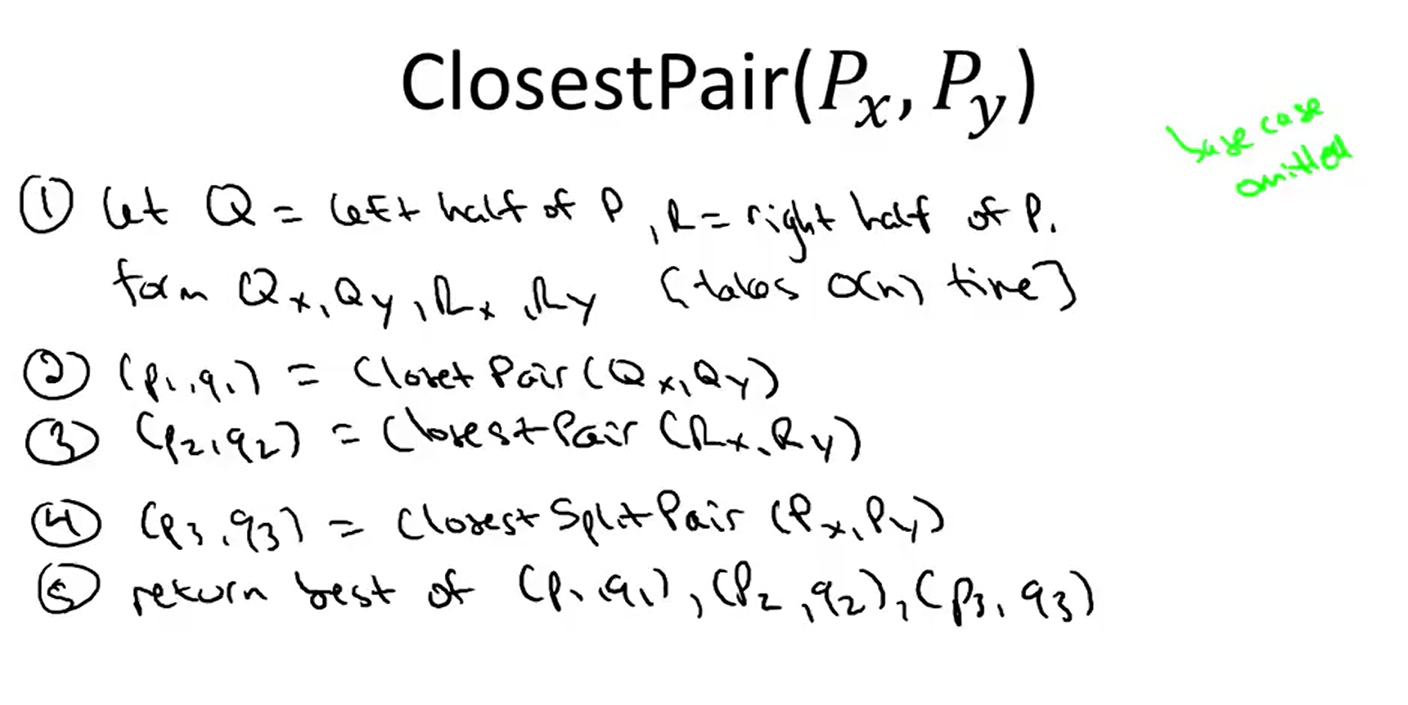 ClosestPair(Pₓ, Pᵧ)
base case
omitted
① let Q = left half of P, R = right half of P.
form Qx, Qy, Rx, Ry [takes O(n) time]
② (p1, q1) = ClosetPair(Qx, Qy)
③ (p2, q2) = ClosestPair(Rx, Ry)
④ (p3, q3) = ClosestSplitPair(Px, Py)
⑤ return best of (p1, q1), (p2, q2), (p3, q3)